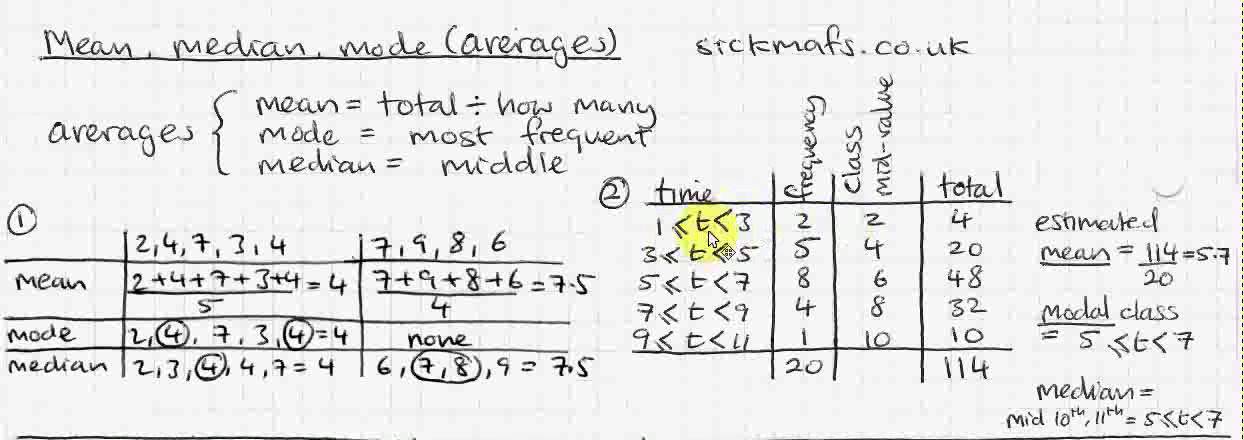 Mean, median, mode (averages)
sickmafs.co.uk
averages { mean = total ÷ how many
mode = most frequent
median = middle
①
2, 4, 7, 3, 4 | 7, 9, 8, 6
mean | 2+4+7+3+4 / 5 = 4 | 7+9+8+6 / 4 = 7.5
mode | 2, 4, 7, 3, 4 = 4 | none
median | 2, 3, 4, 4, 7 = 4 | 6, 7, 8, 9 = 7.5
② time | frequency | class mid-value | total
1 ⩽ t < 3 | 2 | 2 | 4
3 ⩽ t < 5 | 5 | 4 | 20
5 ⩽ t < 7 | 8 | 6 | 48
7 ⩽ t < 9 | 4 | 8 | 32
9 ⩽ t < 11 | 1 | 10 | 10
20 | 114
estimated
mean = 114 / 20 = 5.7
Modal class
= 5 ⩽ t < 7
median =
mid 10th, 11th = 5 ⩽ t < 7